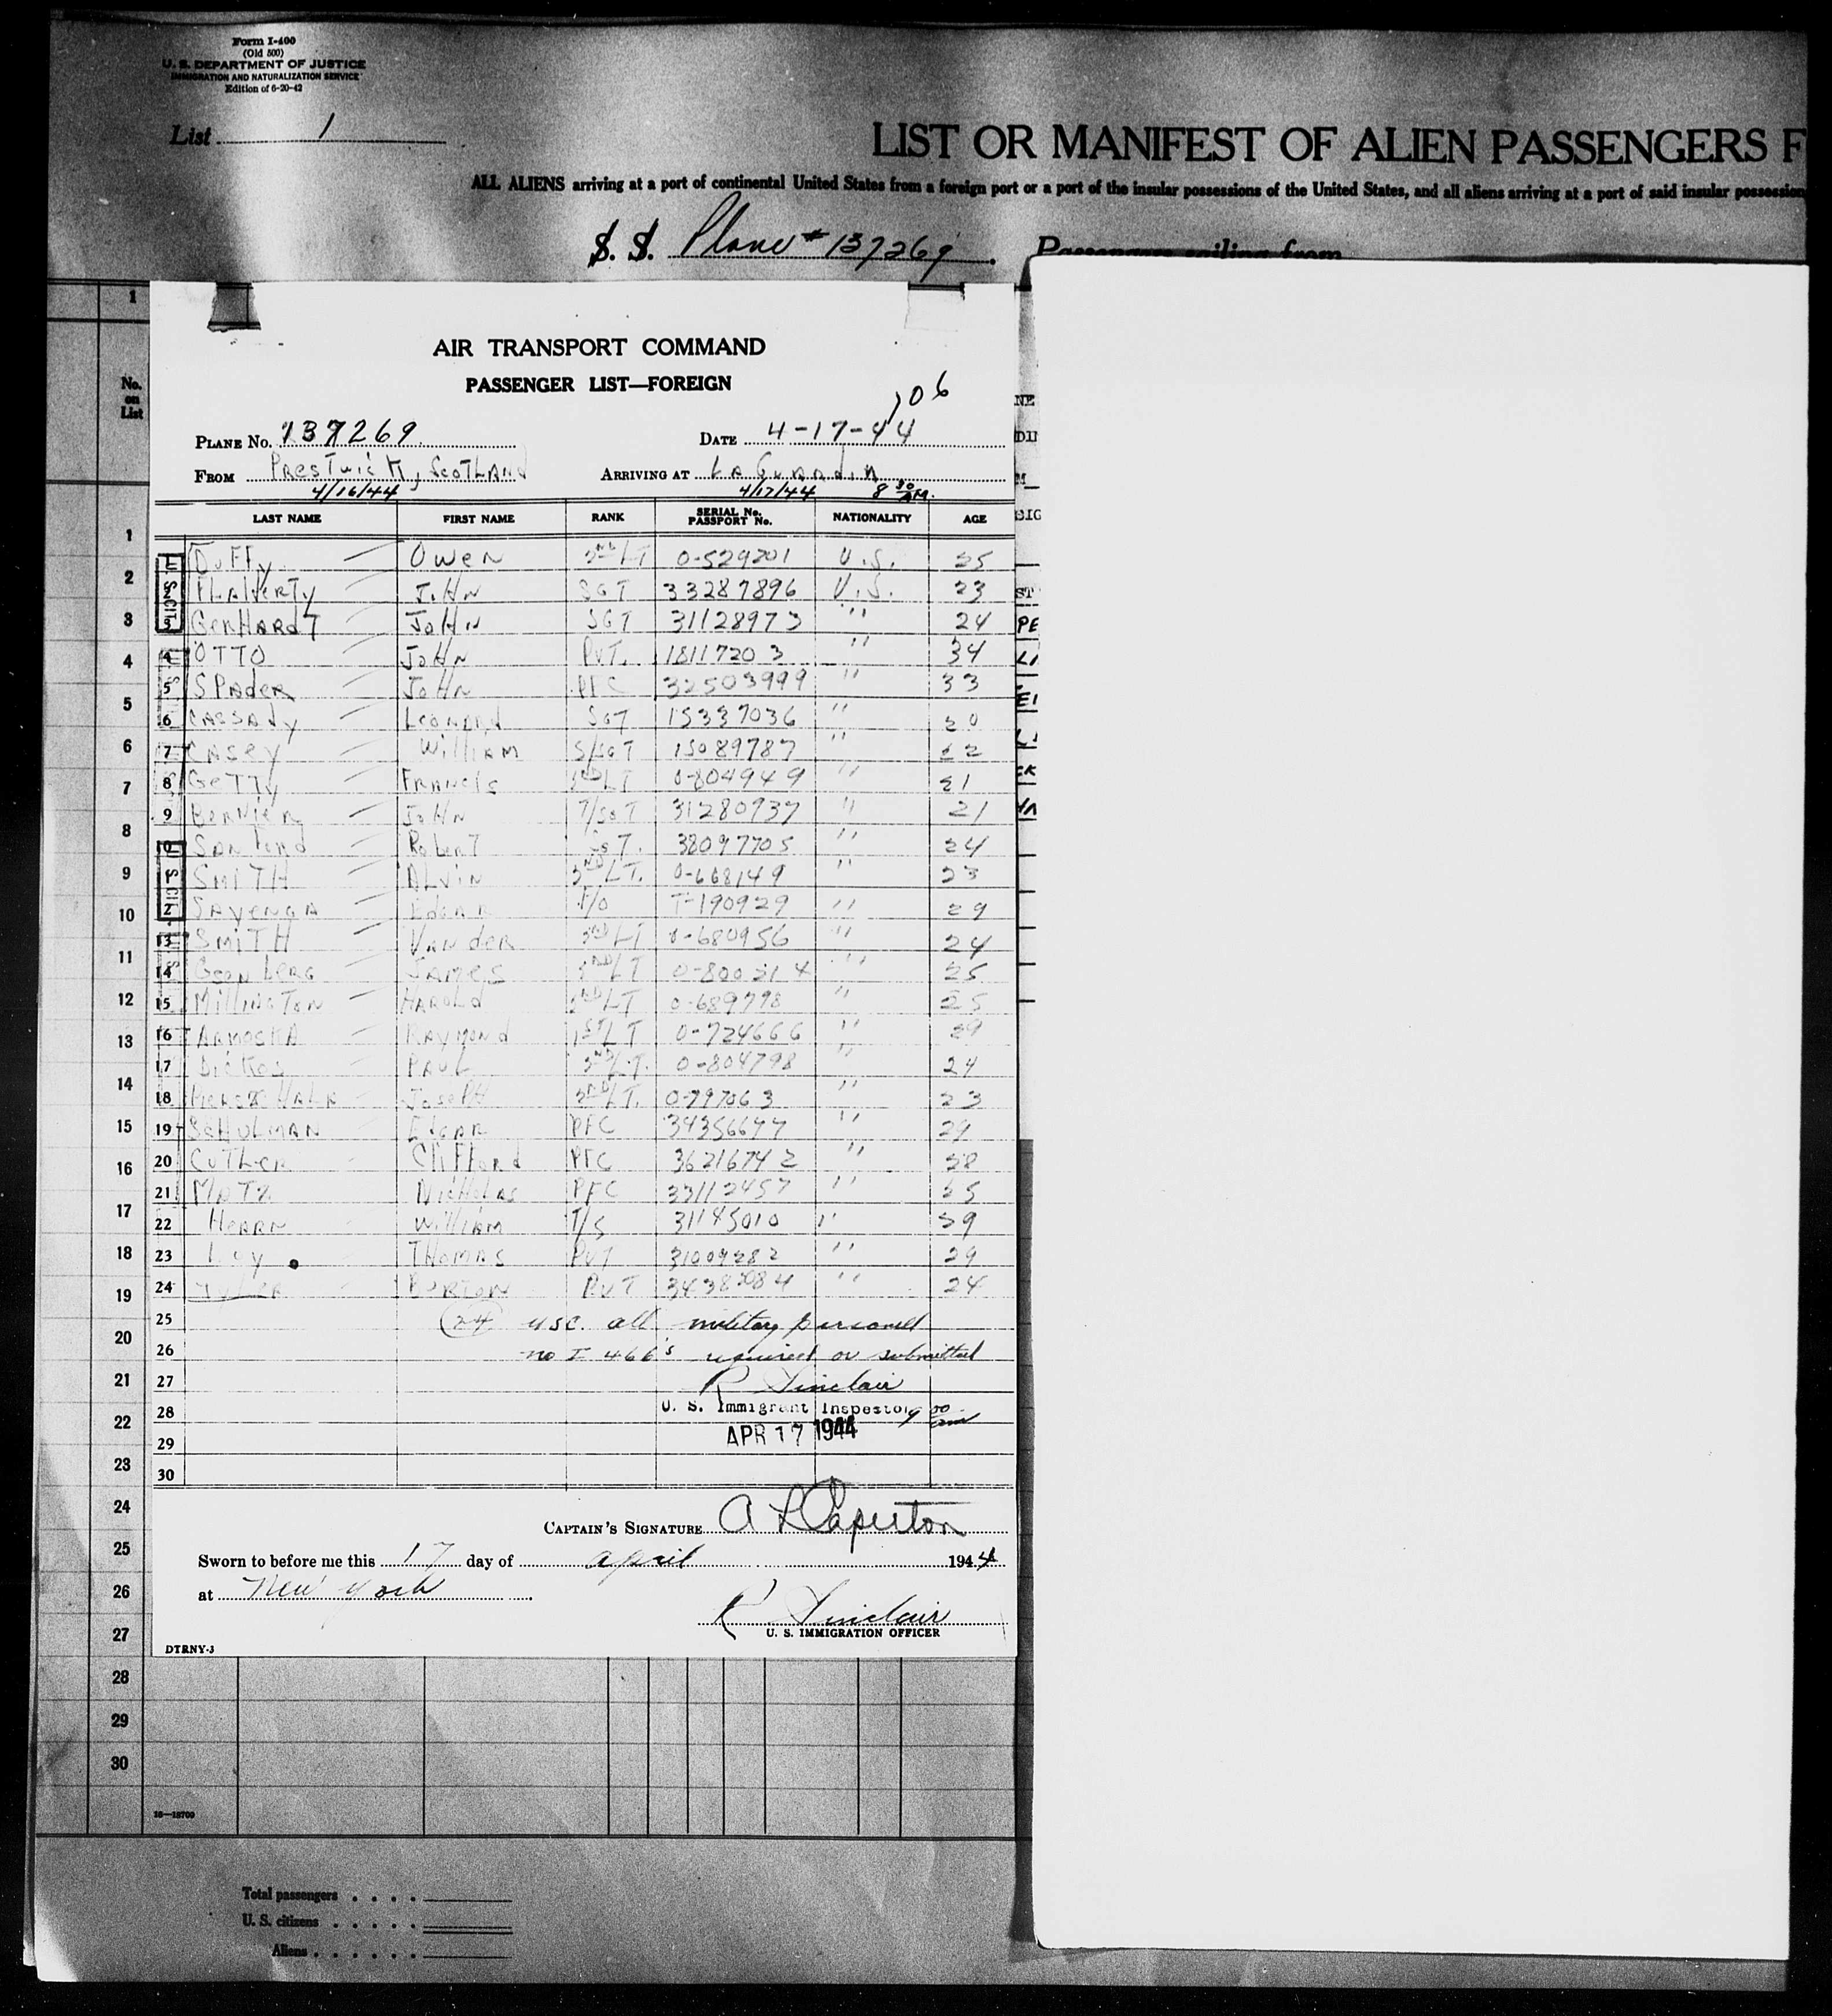 Form I-400
(Old 500)
U. S. DEPARTMENT OF JUSTICE
IMMIGRATION AND NATURALIZATION SERVICE
Edition of 6-20-42
List 1
LIST OR MANIFEST OF ALIEN PASSENGERS F
ALL ALIENS arriving at a port of continental United States from a foreign port or a port of the insular possessions of the United States, and all aliens arriving at a port of said insular possession
S. S. Plane # 137269
Passengers sailing from
No. on List
AIR TRANSPORT COMMAND
PASSENGER LIST—FOREIGN
106
PLANE No. 137269 DATE 4-17-44
FROM Prestwick, Scotland ARRIVING AT La Guardia
4/16/44 4/17/44 8 30 AM.
LAST NAME FIRST NAME RANK SERIAL No. PASSPORT No. NATIONALITY AGE
1 Duffy Owen 2nd LT 0-529201 U.S. 25
2 Flaherty John SGT 33287896 U.S. 23
3 GerHardT JoHn SGT 31128973 " 24
4 OTTO JoHn PVT. 18117203 " 34
5 SPader JoHn PFC 32503999 " 33
6 CASSAdy Leonard SGT 15337036 " 20
7 CASEY William S/SGT 15089787 " 22
8 GeTTy FRANCIS 2nd LT 0-804949 " 21
9 Bernier JoHn T/SGT 31280937 " 21
10 SanFord RoberT SGT. 38097705 " 24
11 SMITH ALvin 2ND LT. 0-668149 " 23
12 SAVENGA Edgar F/O T-190929 " 29
13 SMITH Vander 2nd LT 0-680956 " 24
14 JAMES 2ND LT 0-800214 " 25
15 MillingTon HAROLd 2nd LT 0-689798 " 25
16 RAYMOND 1ST LT 0-724666 " 29
17 PAUL 2nd LT. 0-804798 " 24
18 JosepH 2ND LT. 0-797063 " 23
19 SCHULMAN EdgAR PFC 34356677 " 29
20 CUTLer ClifFord PFC 36216742 " 28
21 MATZ NicHolas PFC 33112457 " 25
22 William T/5 31145010 " 29
23 THOMAS PVT 31009282 " 29
24 BURTON PVT 34382084 " 24
25 (24) USC. all military personnel
26 no I 466's required or submitted
27 R Sinclair
28 U. S. Immigrant Inspector 9 00 am
29 APR 17 1944
30
CAPTAIN'S SIGNATURE A L Caperton
Sworn to before me this 17 day of april 1944
at New York
R Sinclair
U. S. IMMIGRATION OFFICER
DTRNY-3
1
1
2
3
4
5
6
7
8
9
10
11
12
13
14
15
16
17
18
19
20
21
22
23
24
25
26
27
28
29
30
16—18700
Total passengers
U. S. citizens
Aliens